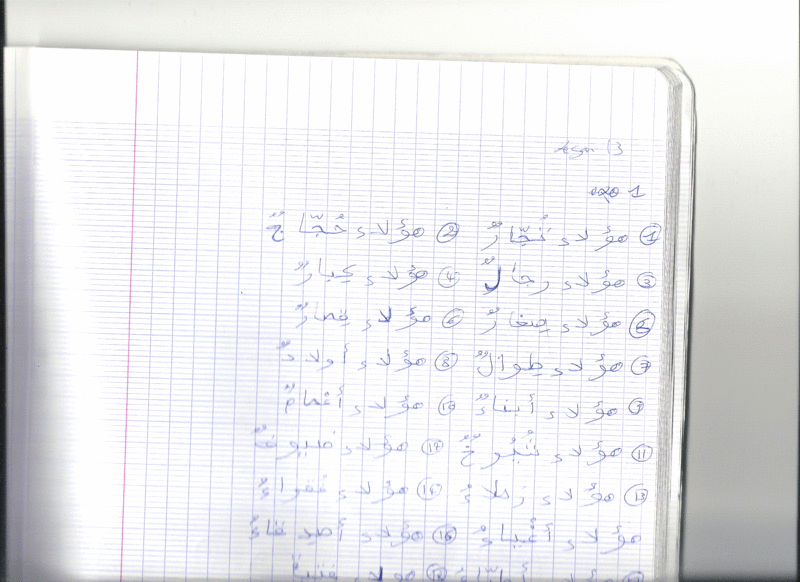 Lesson 13
exo 1
① هؤُلاءِ تُجَّارٌ ② هؤُلاءِ حُجَّاجٌ
③ هؤُلاءِ رِجالٌ ④ هؤُلاءِ كِبارٌ
⑤ هؤُلاءِ صِغارٌ ⑥ هؤُلاءِ قِصارٌ
⑦ هؤُلاءِ طِوالٌ ⑧ هؤُلاءِ أَولادٌ
⑨ هؤُلاءِ أَبناءٌ ⑩ هؤُلاءِ أَعْمامٌ
⑪ هؤُلاءِ شُيُوخٌ ⑫ هؤُلاءِ ضُيوفٌ
⑬ هؤُلاءِ زُملاءٌ ⑭ هؤُلاءِ فُقَراءٌ
هؤُلاءِ أَغْنِياءٌ ⑯ هؤُلاءِ أَصدِقاءٌ